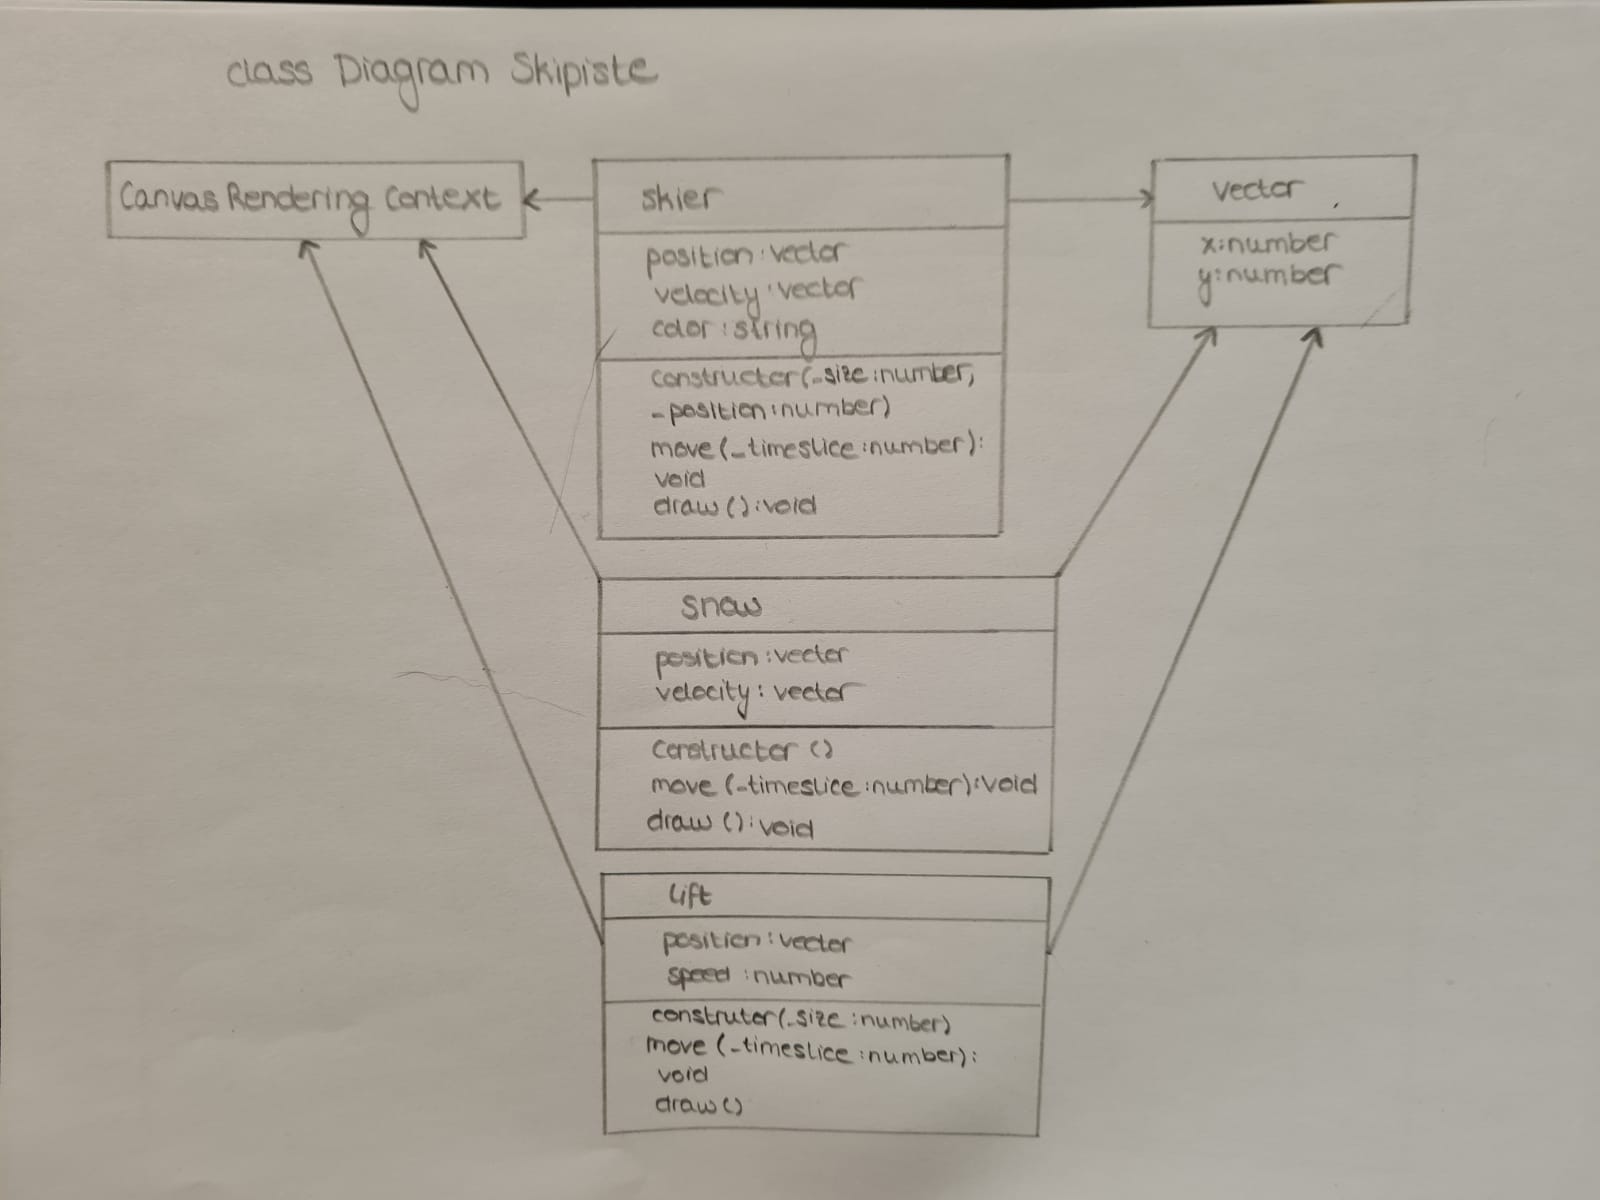 class Diagram Skipiste
Canvas Rendering Context
skier
position:vector
velocity:vector
color:string
constructor(_size:number,
_position:number)
move(_timeslice:number):
void
draw():void
vector
x:number
y:number
snow
position:vector
velocity:vector
constructor()
move(_timeslice:number):void
draw():void
lift
position:vector
speed:number
construtor(_size:number)
move(_timeslice:number):
void
draw()